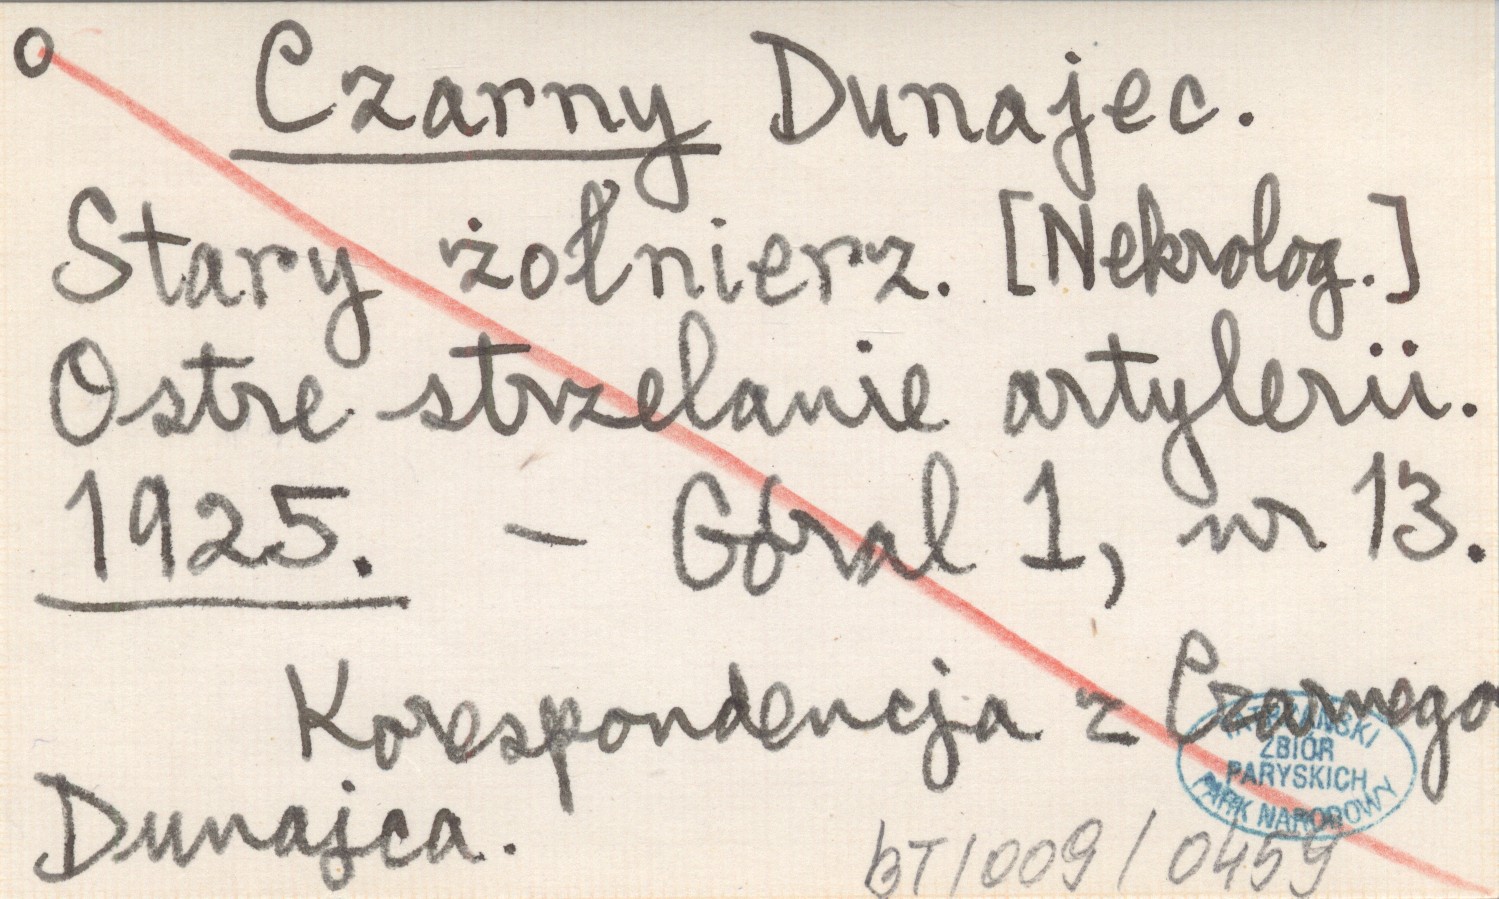 o Czarny Dunajec.
Stary żołnierz. [Nekrolog.]
Ostre strzelanie artylerii.
1925. - Góral 1, nr 13.
Korespondencja z Czarnego
Dunajca.
TATRZAŃSKI
ZBIÓR
PARYSKICH
PARK NARODOWY
bT/009/0459